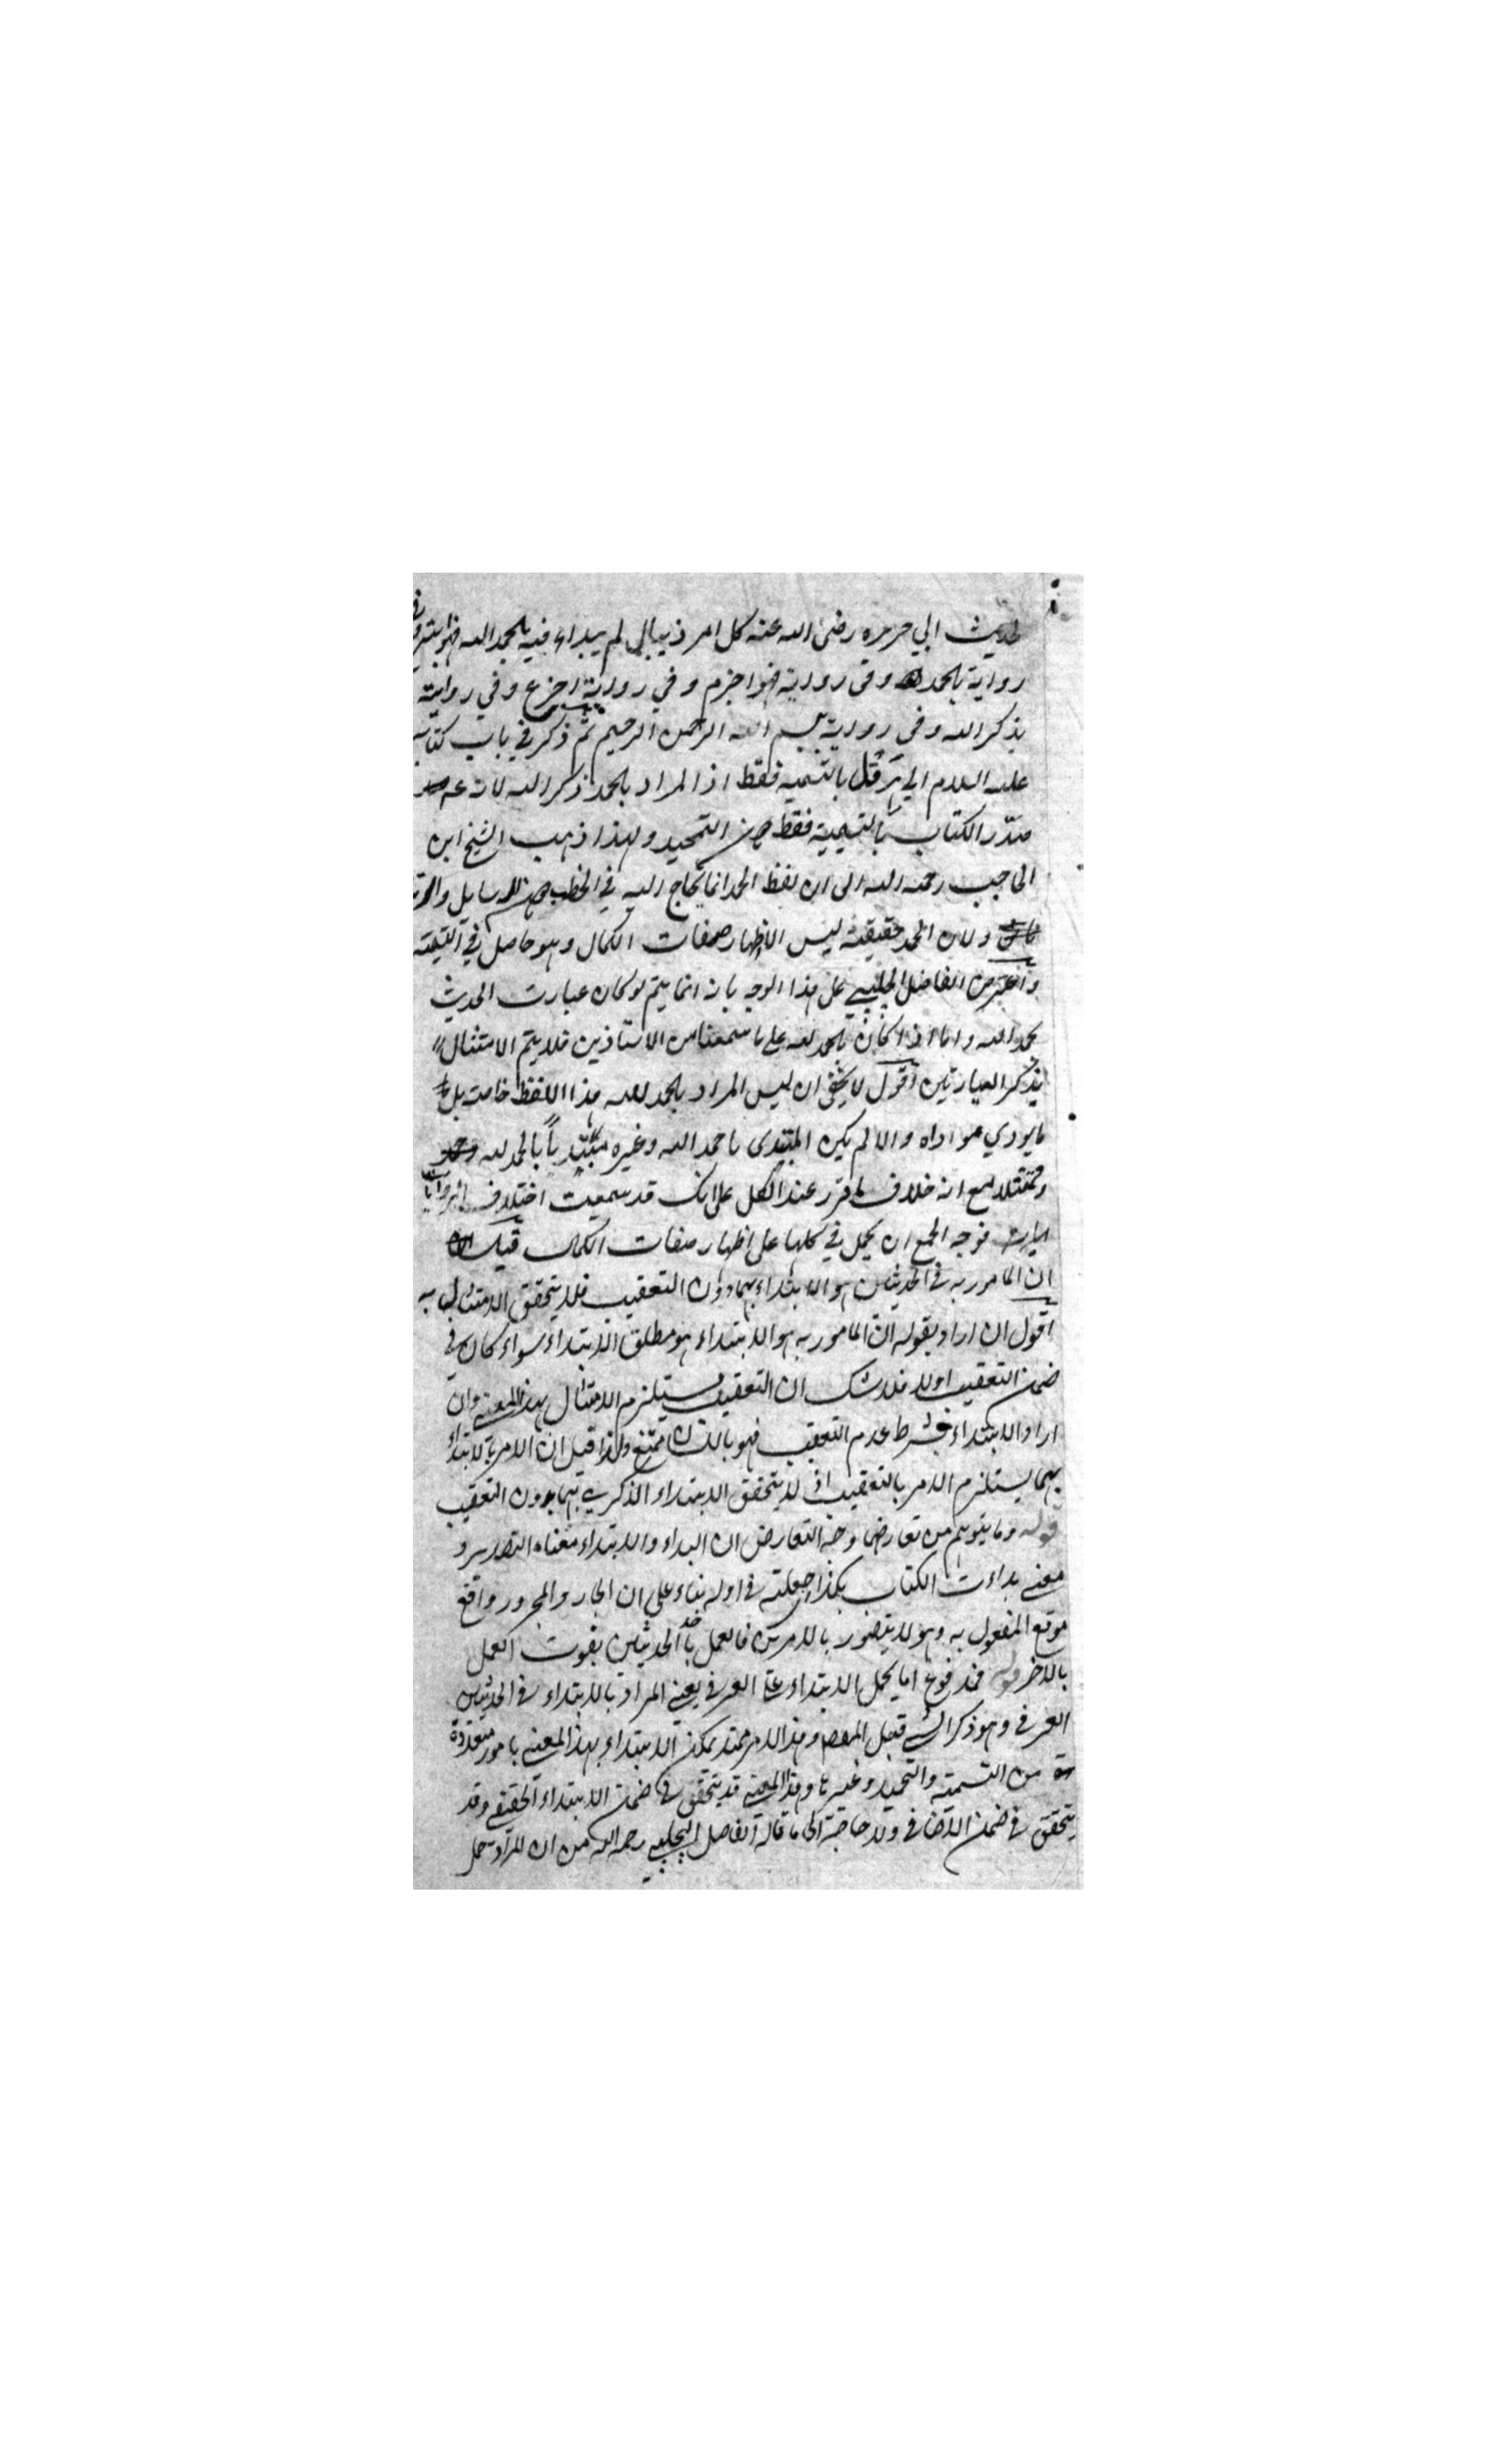 لحديث ابي هريره رضى الله عنه كل امر ذيبال لم يبداء فيه بالحمد لله فهو ابتر و فى
رواية بالحمد وفى رواية فهو اجزم وفي رواية اجزع وفي رواية
بذكر الله وفى رواية ببسم الله الرحمن الرحيم ثم ذكر في باب كتاب
عليه السلام الي هرقل بالتسمية فقط اذ المراد بالحمد ذكر الله لانه عم
صدّر الكتاب بالتسمية فقط دون التحميد ولهذا ذهب الشيخ ابن
الحاجب رحمه الله الى ان لفظ الحمد انما يحتاج اليه في الخطب دون الرسايل والو
ولان الحمد حقيقته ليس الا اظهار صفات الكمال وهو حاصل في التسمية
واعترض الفاضل الچلبي على هذا الوجه بانه انما يتم لو كان عبارت الحديث
بحمد الله واما اذا كان بالحمد لله على ما سمعنا من الاستاذين فلا يتم الامتثال
بذكر العبارتين اقول لا يخفى ان ليس المراد بالحمد لله هذا اللفظ خاصة بل
ما يودي مواداه والا لم يكن المبتدى باحمد الله وغيره مبتدياً بالحمد لله
وممتثلا مع انه خلاف ما قرر عند الكل على انك قد سمعت اختلاف الروايات
فوجه الجمع ان يحمل في كلها على اظهار صفات الكمال قيل
ان المامور به في الحديثين هو الابتداء بهما دون التعقيب فلا يتحقق الامتثال به
اقول ان اراد بقوله انّ المامور به هو الابتداء هو مطلق الابتداء سواء كان في
ضمن التعقيب اولا فلا شك ان التعقيب يستلزم الامتثال بهذا المعنى وان
اراد الابتداء بشرط عدم التعقيب فهو بالذات ممتنع ولذا قيل ان الامر بالابتداء
بهما يستلزم الامر بالتعقيب اذ لا يتحقق الابتداء الذكري بهما بدون التعقيب
قوله وما يتوهم من تعارض وجه التعارض ان البداء والابتداء معناه التصدير و
معنى بداءت الكتاب بكذا جعلته في اوله بناء على ان الجار والمجرور واقع
موقع المفعول به وهو لا يتصور بالامرين فالعمل باحد الحديثين يفوت العمل
بالاخر قوله فمدفوع اما يحمل الابتداء على العرفي يعني المراد بالابتداء في الحديثين
العرفي وهو ذكر الشي قبل المقصود وهذا الامر ممتد يمكن الابتداء بهذا المعنى بامور متعددة
من التسمية والتحميد وغيرها وهذا المعنى قد يتحقق في ضمن الابتداء الحقيقي وقد
يتحقق في ضمن الاضافي ولا حاجة الى ما قاله الفاضل الچلبي رحمه الله من ان المراد حمل